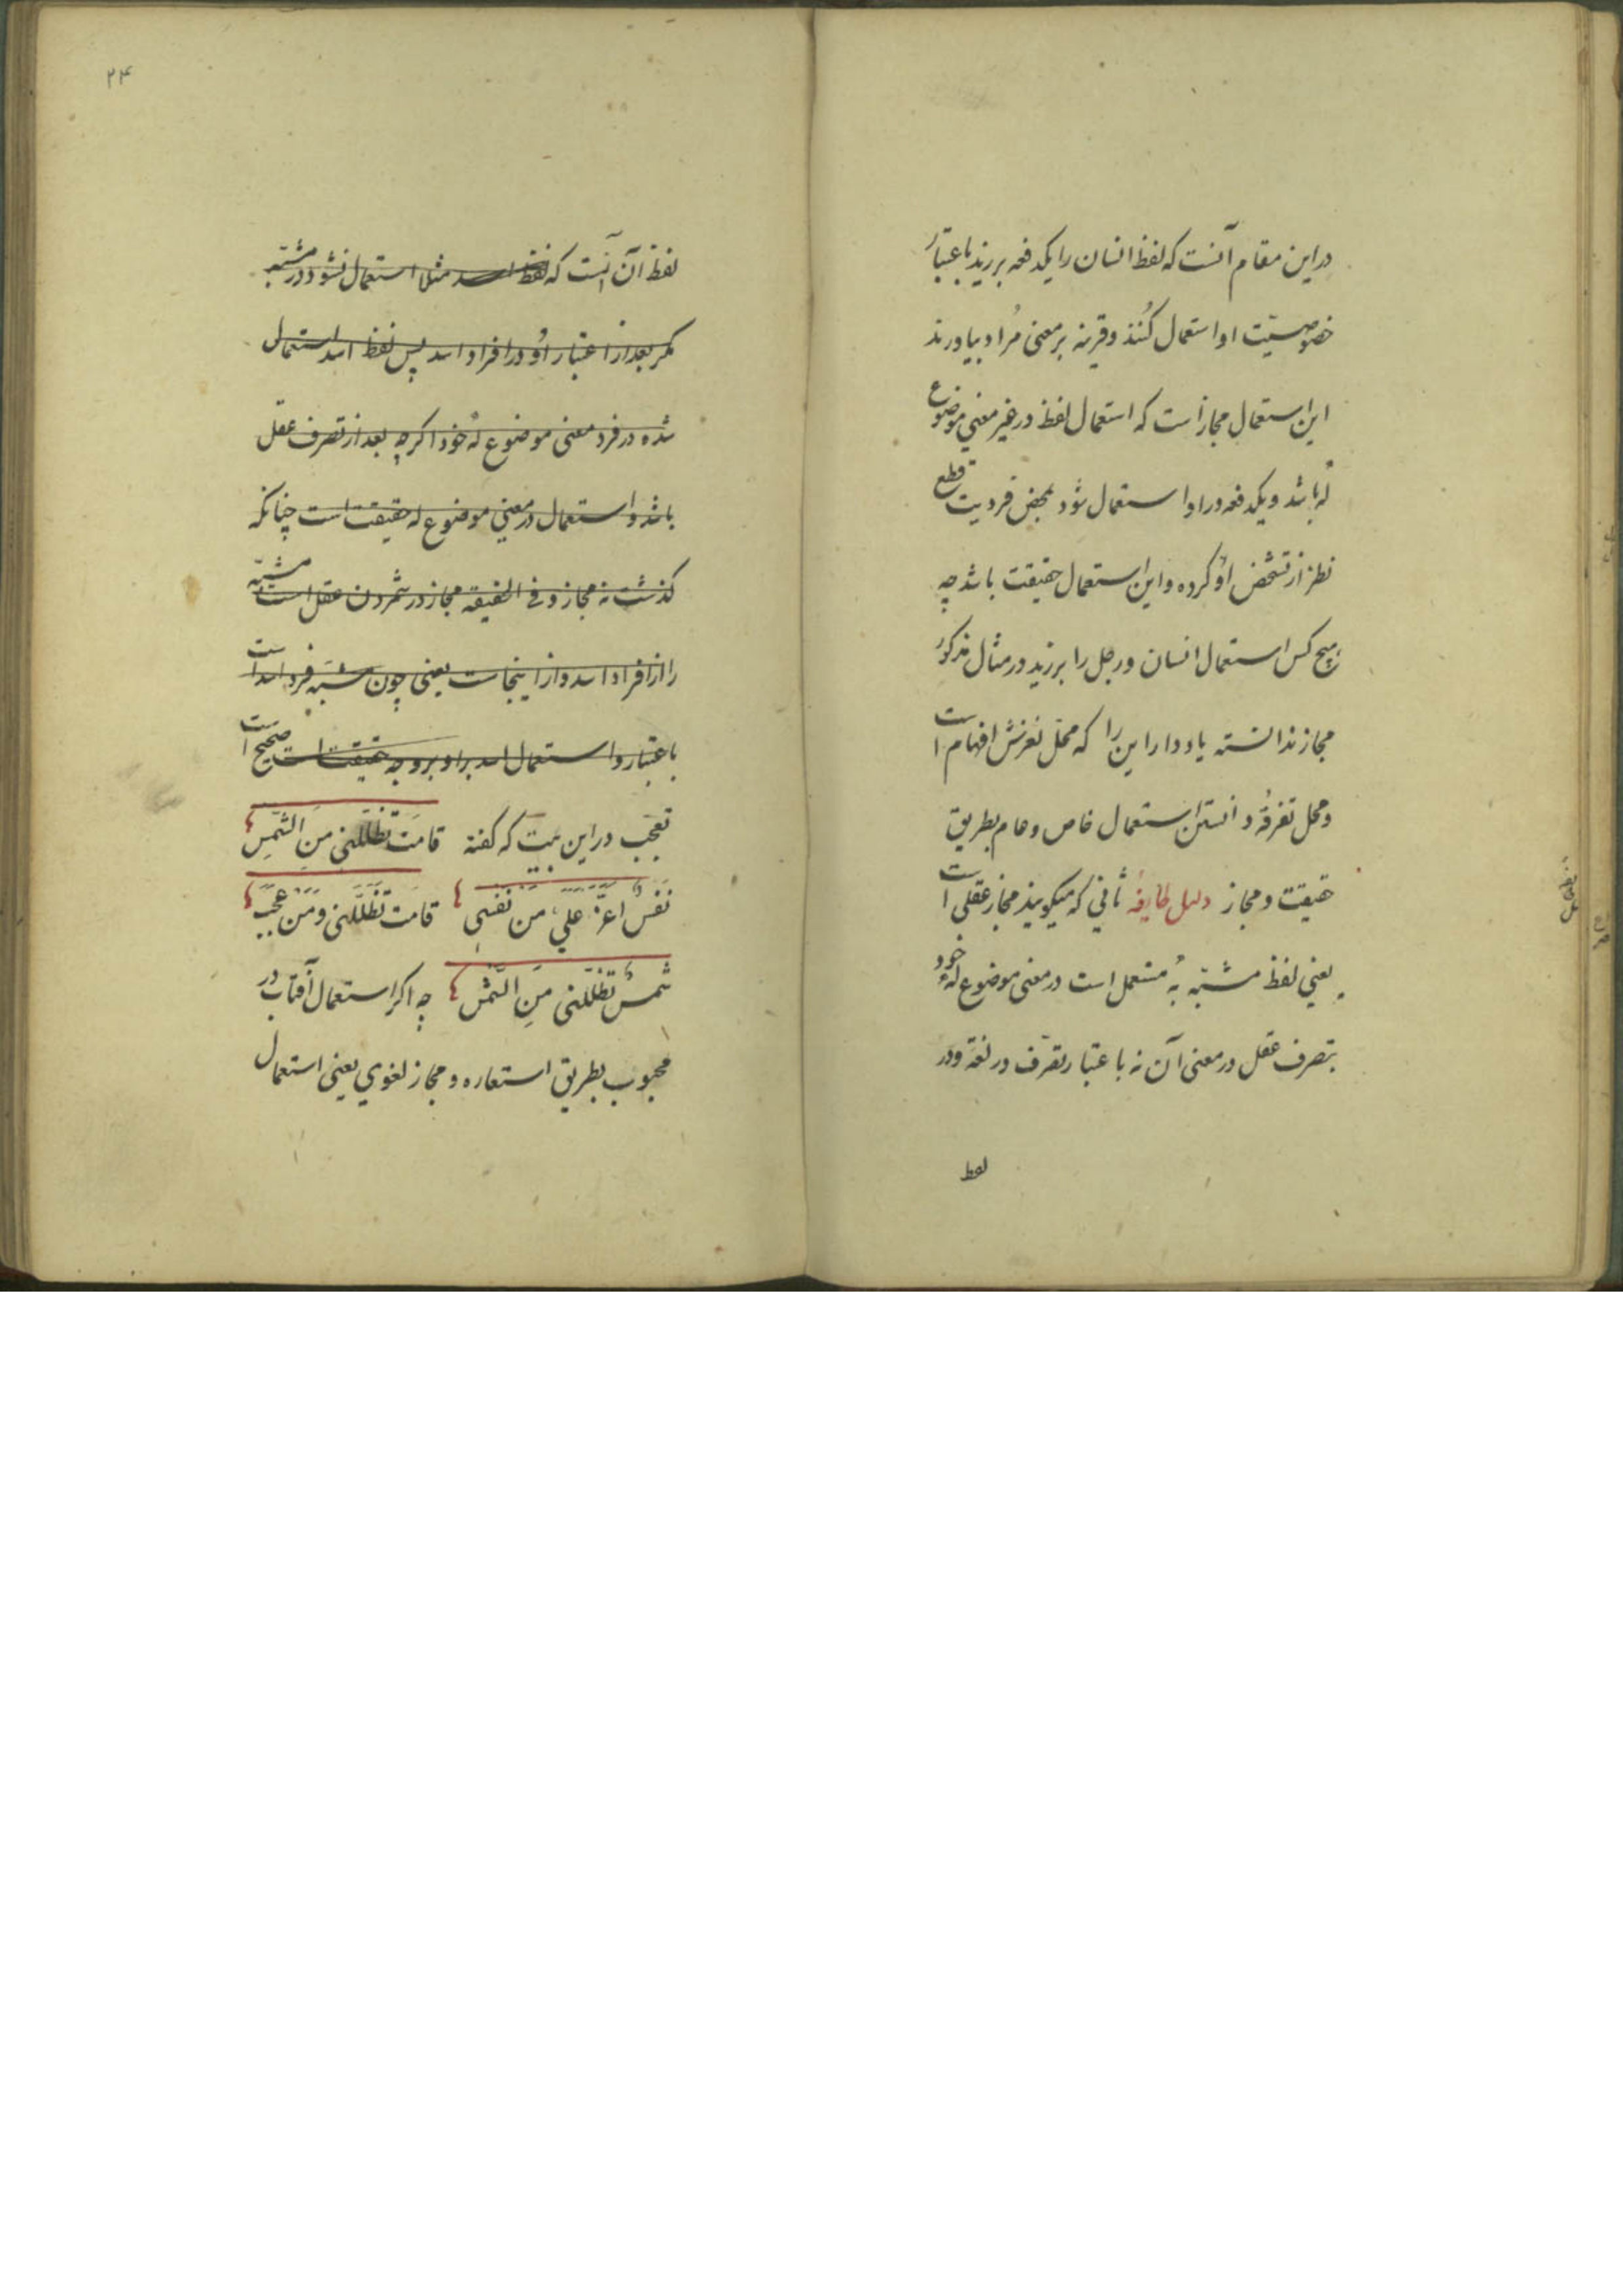 در این مقام آنست که لفظ انسان را یکدفعه بر زید باعتبار
خصوصیّت او استعمال کُنند و قرینه بر معنی مُراد بیاورند
این استعمال مجاز است که استعمال لفظ در غیر معنی موضوع
لهُ باشد و یکدفعه در او استعمال شود بمحض فردیت قطع
نظر از تشخّص اوُ کرده و این استعمال حقیقت باشد چه
هیچ کس استعمال انسان و رجل را بر زید در مثال مذکور
مجاز ندانسته یاد دار این را که محّل لغزش افهام است
و محل تفرقهُ دانستن استعمال خاص و عام بطریق
حقیقت و مجاز دلیل طایفهُ ثانی که میکویند مجاز عقلی است
یعنی لفظ مشبّه بهُ مستعمل است در معنی موضوع لهُ خود
بتصرف عقل در معنی آن نه باعتبار تصرّف در لغة و در
لفظ
۲۴
لفظ آن آنست که لفظ اسد مثلا استعمال نشود در مشبّه
مکر بعد از اعتبار اوُ در افراد اسد پس لفظ اسد استعمال
شده در فرد معنی موضوع لهُ خود اکرچه بعد از تصرف عقل
باشد و استعمال در معنی موضوع له حقیقت است چنانکه
کذشت نه مجاز و فی الحقیقه مجاز در شمردن عقل است مشبّه
را از افراد اسد و از اینجاست یعنی چون مشبّه فرد اسد است
باعتبار و استعمال اسد بر او بر وجه حقیقت است صحیح است
تعجّب در این بیت که کفته قامَت تظَلّلنی مِنَ الشّمسِ
نَفسٌ اعَزُّ علَیَّ مِنْ نَفسی قامَت تظَلّلنی ومِنْ عجَبٍ
شمسٌ تظَلّلنی مِنَ الشّمْسِ چه اکر استعمال آفتاب در
محبوب بطریق استعاره و مجاز لغوی یعنی استعمال